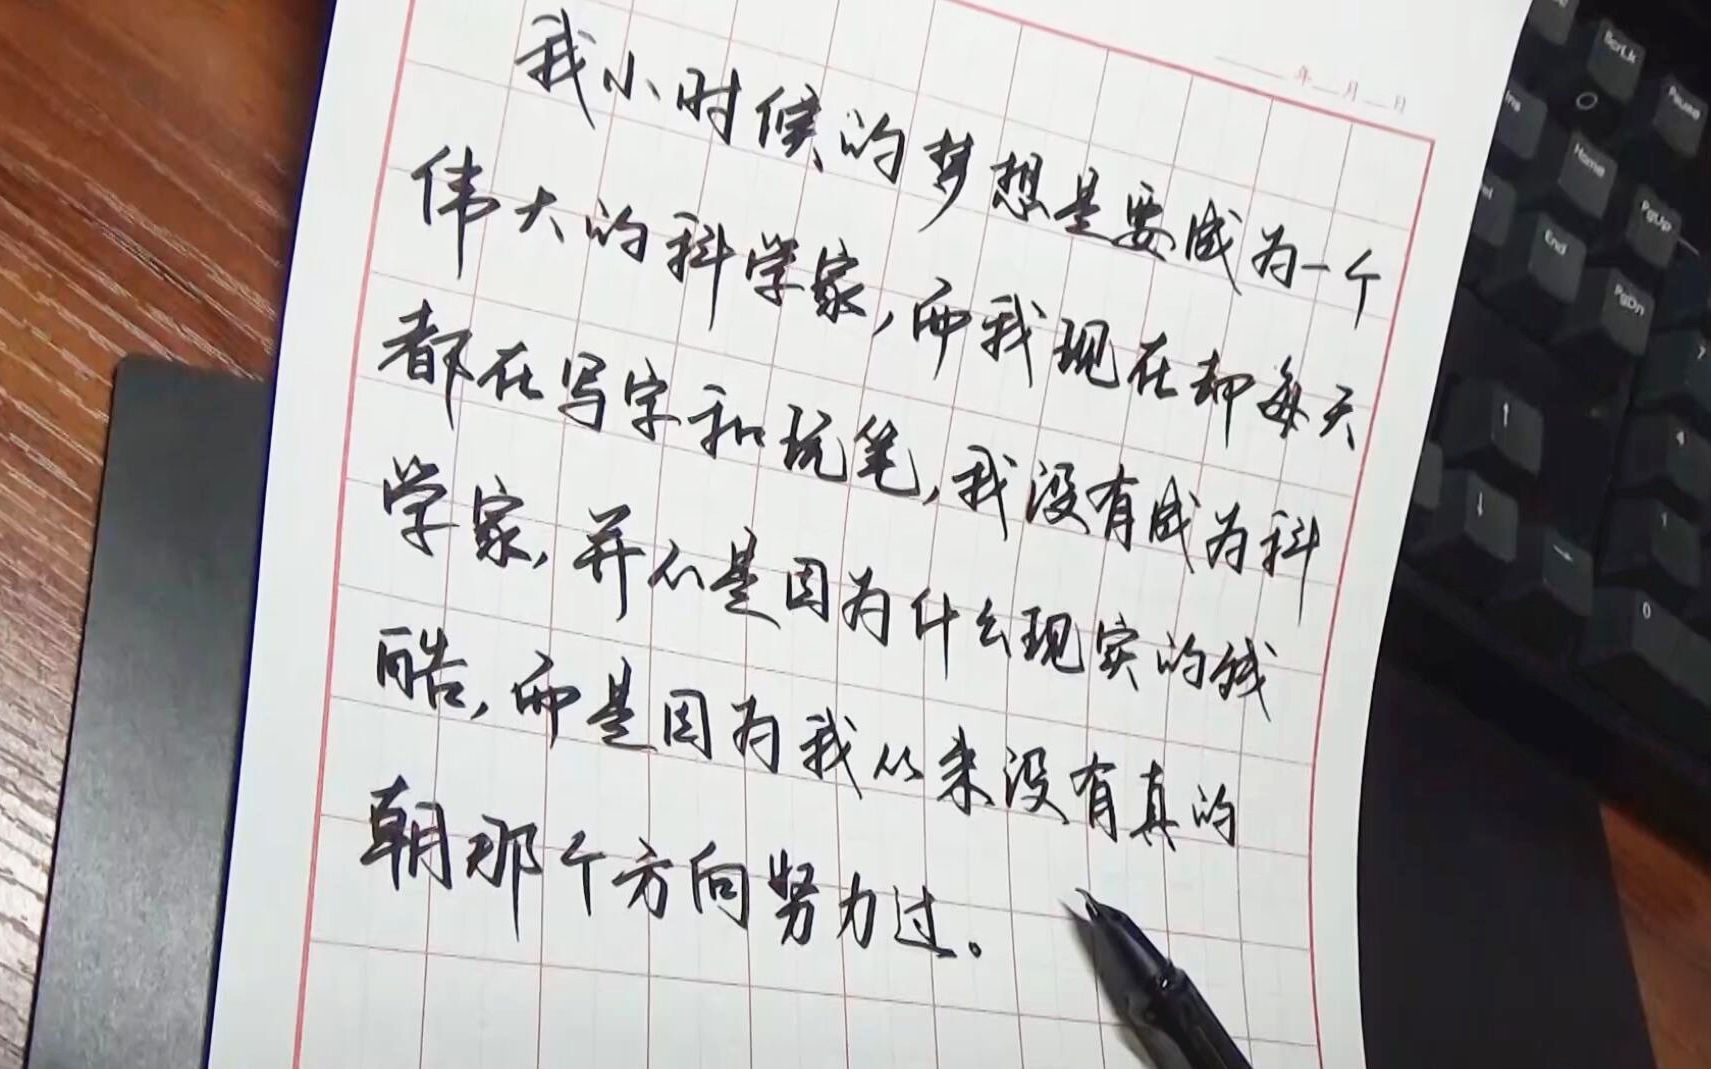 年 月 日
我小时候的梦想是要成为一个
伟大的科学家,而我现在却每天
都在写字和玩笔,我没有成为科
学家,并不是因为什么现实的残
酷,而是因为我从来没有真的
朝那个方向努力过。
ScrLk
Pause
Ins
Home
PgUp
End
PgDn
7
4
1
0
↑
↓
→